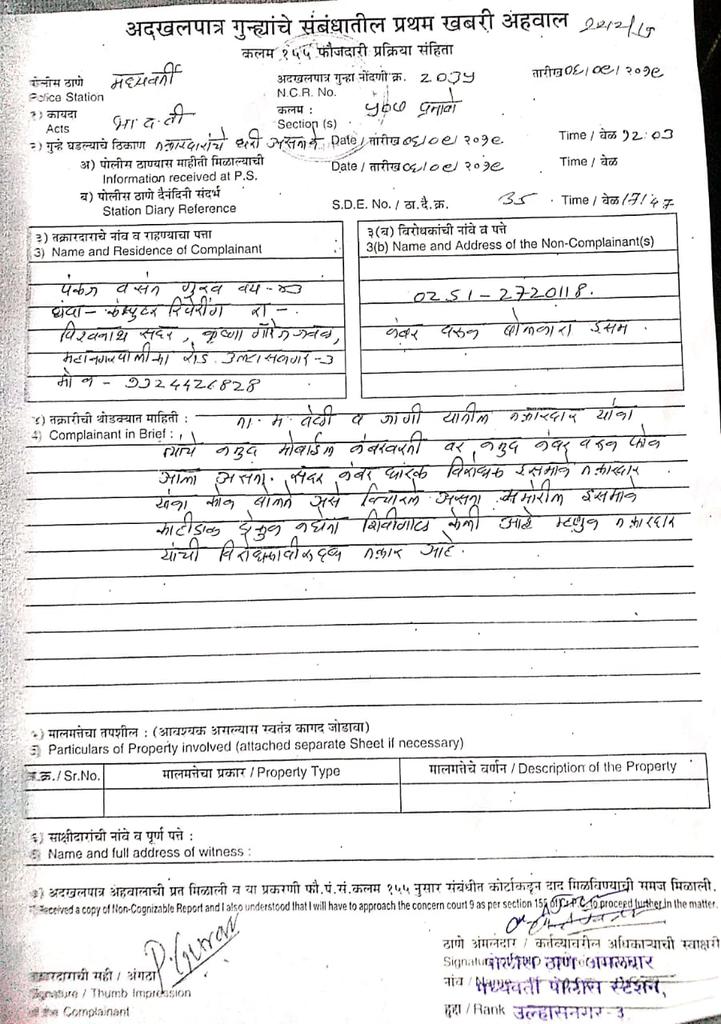 अदखलपात्र गुन्ह्यांचे संबंधातील प्रथम खबरी अहवाल
कलम १५५ फौजदारी प्रक्रिया संहिता
पोलीस ठाणे मध्यवर्ती अदखलपात्र गुन्हा नोंदणी क्र. २०३५ तारीख
Police Station N.C.R. No.
२) कायदा भा द वी कलम : ५०७ प्रमाणे
Acts Section (s)
गुन्हे घडल्याचे ठिकाण तक्रारदारांचे घरी असताने Date / तारीख Time / वेळ १२:०३
अ) पोलीस ठाण्यास माहीती मिळाल्याची Date / तारीख Time / वेळ
Information received at P.S.
ब) पोलीस ठाणे दैनंदिनी संदर्भ S.D.E. No. / ठा.दै.क्र. 35 Time / वेळ 17/47
Station Diary Reference
३) तक्रारदाराचे नांव व राहण्याचा पत्ता
3) Name and Residence of Complainant
पंकज वसंत गुरव वय-
धंदा - कंम्प्युटर रिपेरींग रा -
विश्वनाथ सदन, कृष्णा गार्डन जवळ,
महानगरपालीका रोड उल्हासनगर-३
मो न - 9324426828
३(ब) विरोधकांची नांवे व पत्ते
3(b) Name and Address of the Non-Complainant(s)
0251-2720118.
नंबर वरून बोलणारा इसम
४) तक्रारीची थोडक्यात माहिती : ता. म. वेळी व जागी यातील तक्रारदार यांना
4) Complainant in Brief : त्याचे नमुद मोबाईल नंबरवरती वर नमुद नंबर वरून फोन
आला असता. सदर नंबर धारक विरोधक इसमाने तक्रारदार
यांना कोण बोलते असे विचारले असता समोरील इसमाने
काहीएक ऐकुन न घेता शिवीगाळ केली आहे म्हणुन तक्रारदार
यांची विरोधकाविरुद्ध तक्रार आहे.
५) मालमत्तेचा तपशील : (आवश्यक असल्यास स्वतंत्र कागद जोडावा)
5) Particulars of Property involved (attached separate Sheet if necessary)
अ.क्र. / Sr.No. मालमत्तेचा प्रकार / Property Type मालमत्तेचे वर्णन / Description of the Property
६) साक्षीदारांची नांवे व पूर्ण पत्ते :
6) Name and full address of witness :
७) अदखलपात्र अहवालाची प्रत मिळाली व या प्रकरणी फौ.प्र.सं.कलम १५५ नुसार संबंधीत कोर्टाकडून दाद मिळविण्याची समज मिळाली.
Received a copy of Non-Cognizable Report and I also understood that I will have to approach the concern court 9 as per section 155 of Cr.P.C. to proceed further in the matter.
P. Gurav
तक्रारदाराची सही / अंगठा
Signature / Thumb Impression
of the Complainant
ठाणे अंमलदार / कर्तव्यावरील अधिकाऱ्याची स्वाक्षरी
पोलीस ठाणे अंमलदार
नांव / मध्यवर्ती पोलीस स्टेशन,
हुद्दा / Rank उल्हासनगर-३